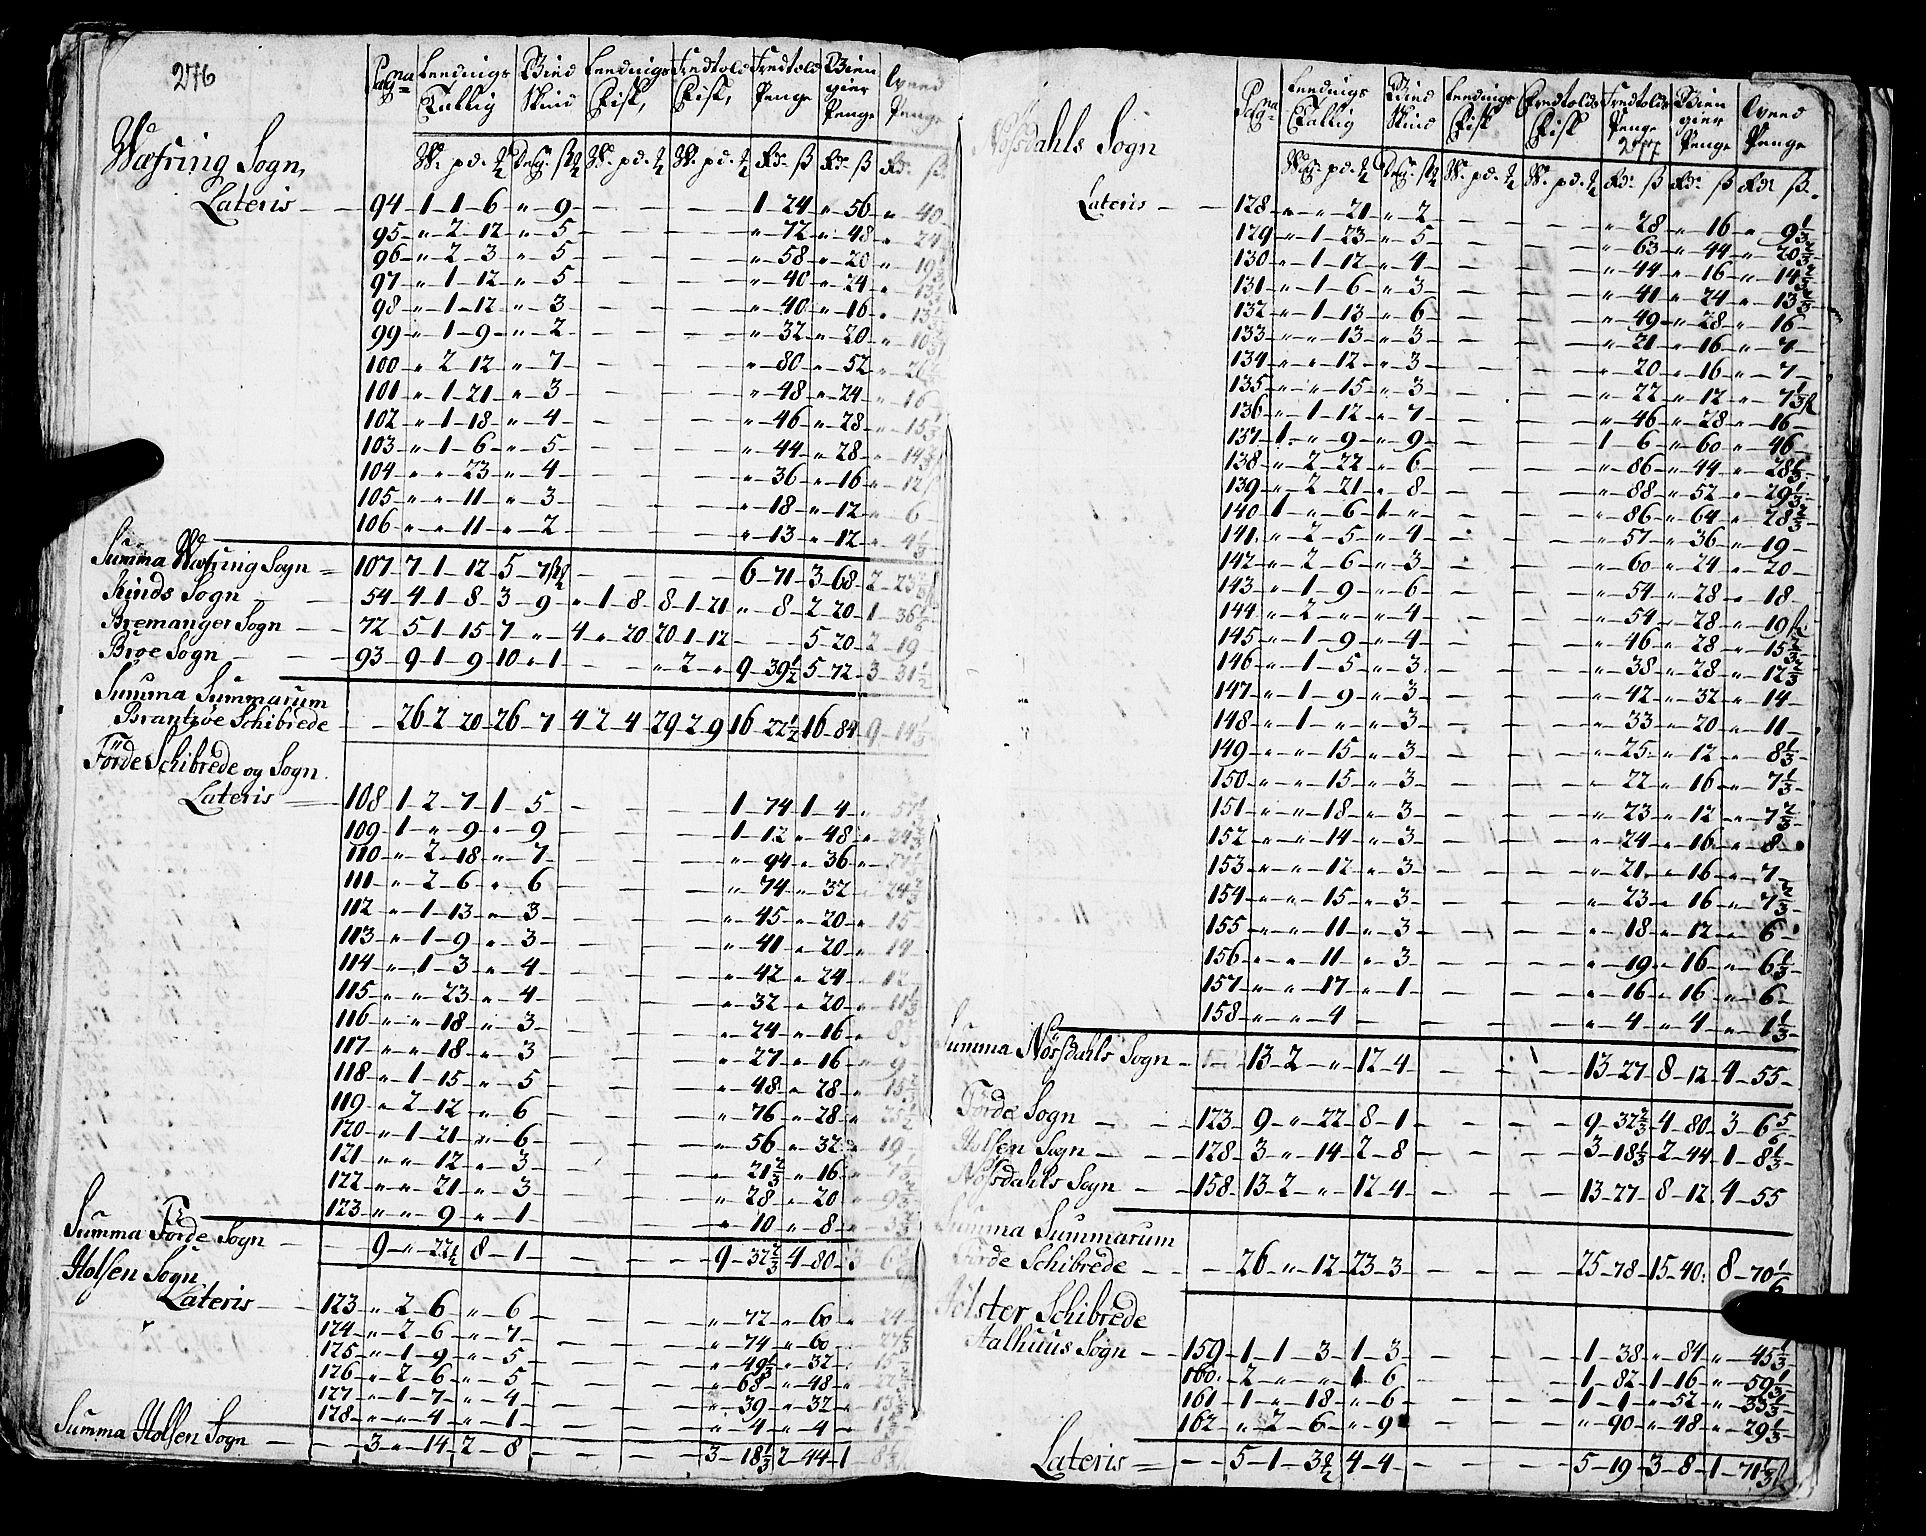 276
Pagna Leednigs Tallig Bien Skind Leednigs Fisk, Fredtold Fisk, Fredtold Penge Bien gier Penge Oveed Penge
Wæfring Sogn,
W. pd. ℔ Degr. W. pd. ℔ W. pd. ℔ Rdr. ß Rdr. ß Rdr. ß.
Lateris — 94 1 1 6 " 9 — — 1 24 " 56 " 40
95 " 2 12 " 5 — — " 72 " 48 " 24
96 " 2 3 " 5 — — " 58 " 20 " 19
97 " 1 12 " 5 — — " 40 " 24 " 13
98 " 1 12 " 3 — — " 40 " 16 " 13
99 " 1 9 " 2 — — " 32 " 20 " 10
100 " 2 12 " 7 — — " 80 " 52
101 " 1 21 " 3 — — " 48 " 24 " 16
102 " 1 18 " 4 — — " 46 " 28 " 15
103 " 1 6 " 5 — — " 44 " 28 " 14
104 " " 23 " 4 — — " 36 " 16 " 12
105 " " 11 " 3 — — " 18 " 12 " 6
106 " " 11 " 2 — — " 13 " 12 " 4 1/3
Summa Wæfring Sogn 107 7 1 12 5 7 — — 6 71 3 68 2 23
Kinds Sogn — 54 4 1 8 3 9 " 1 8 8 1 21 " 8 2 20 1 36
Bremanger Sogn — 72 5 1 15 7 " 4 " 20 20 1 12 — 5 20 2 19
Brøe Sogn — 93 9 1 9 10 1 — " 2 " 9 39 1/2 5 72 3 31 1/2
Summa Summarum
Brantzøe Schibrede — 26 2 20 26 7 4 2 4 29 2 9 16 22 1/2 16 84 9 14
Förde Schibrede og Sogn.
Lateris — 108 1 2 7 1 5 — — 1 74 1 4
109 1 " 9 " 9 — — 1 12 " 48 " 34
110 " 2 18 " 7 — — " 94 " 36
111 " 2 6 " 6 — — " 74 " 32 " 24
112 " 1 13 " 3 — — " 45 " 20 " 15
113 " 1 9 " 3 — — " 41 " 20 " 14
114 " 1 3 " 4 — — " 42 " 24 " 12
115 " " 23 " 4 — — " 32 " 20
116 " " 18 " 3 — — " 24 " 16 " 8
117 " " 18 " 3 — — " 27 " 16 " 9
118 " 1 15 " 5 — — " 48 " 28 " 15
119 " 2 12 " 6 — — " 76 " 28 " 25
120 " 1 21 " 6 — — " 56 " 32 " 19
121 " " 12 " 3 — — " 21 2/3 " 16 " 7
122 " " 21 " 3 — — " 28 " 20 " 9
123 " " 9 " 1 — — " 10 " 8 " 3
Summa Förde Sogn — 9 " 22 1/2 8 1 — — 9 32 2/3 4 80 3 6
Holsen Sogn
Lateris — 123 " 2 6 " 6 — — " 72 " 60 " 24
124 " 2 6 " 7 — — " 74 " 60
125 " 1 9 " 5 — — " 49 1/3 " 32 " 15
126 " 2 6 " 5 — — " 68 " 48
127 " 1 7 " 4 — — " 39 " 32 " 13
128 " " 4 " 1 — — " 4 " 4 " 1
Summa Holsen Sogn — 3 " 14 2 8 — — 3 18 1/3 2 44 1 8
277
Pagna Leednigs Tallig Bien Skind Leednigs Fisk Fredtolds Fisk Fredtolds Penge Bien gier Penge Oveed Penge
Nösdahls Sogn
W. pd. ℔ Degr. W. pd. ℔ W. pd. ℔ Rdr. ß Rdr. ß Rdr. ß.
Lateris — 128 " " 21 " 2 — — " 28 " 16 " 9 1/3
129 " 1 23 " 5 — — " 63 " 44 " 20 2/3
130 " 1 12 " 4 — — " 44 " 16 " 14 2/3
131 " 1 6 " 3 — — " 41 " 24 " 13 2/3
132 " 1 13 " 6 — — " 49 " 28 " 16
133 " " 13 " 3 — — " 21 " 16 " 7
134 " " 12 " 3 — — " 20 " 16 " 7
135 " " 15 " 3 — — " 22 " 12 " 7 1/3
136 " 1 12 " 7 — — " 46 " 28 " 16
137 1 " 9 " 9 — — 1 6 " 60 " 46
138 " 2 22 " 6 — — " 86 " 44 " 28
139 " 2 21 " 8 — — " 88 " 52 " 29 1/3
140 1 " 6 1 " — — " 86 " 64 " 28 2/3
141 " 2 5 " 4 — — " 57 " 36 " 19
142 " 2 6 " 3 — — " 60 " 24 " 20
143 " 1 9 " 6 — — " 54 " 28 " 18
144 " 2 " " 4 — — " 54 " 28 " 19
145 " 1 9 " 4 — — " 46 " 28 " 15 2/3
146 " 1 5 " 3 — — " 38 " 28 " 12 2/3
147 " 1 9 " 3 — — " 42 " 32 " 14
148 " 1 " " 3 — — " 33 " 20 " 11
149 " " 15 " 3 — — " 25 " 12 " 8 1/3
150 " " 15 " 3 — — " 22 " 16 " 7 1/3
151 " " 18 " 3 — — " 23 " 12 " 7 2/3
152 " " 14 " 3 — — " 24 " 16 " 8
153 " " 12 " 3 — — " 21 " 16 " 7
154 " " 15 " 3 — — " 23 " 16 " 7 2/3
155 " " 11 " 3 — — " 18 " 12 " 6
156 " " 11 " 3 — — " 19 " 16 " 6 1/3
157 " " 17 " 1 — — " 16 " 16 " 6
158 " " 4 — — — " 4 " 4 " 1 1/3
Summa Nösdahls Sogn — 13 2 " 12 4 — — 13 27 8 12 4 55
Förde Sogn — 123 9 " 22 8 1 — — 9 32 2/3 4 80 3 6 5/6
Holsen Sogn — 128 3 " 14 2 8 — — 3 18 1/3 2 44 1 8 1/3
Nösdahls Sogn — 158 13 2 " 12 4 — — 13 27 8 12 4 55
Summa Summarum
Förde Schibrede — 26 " 12 23 3 — — 25 78 15 40 8 70 1/6
Jölster Schibrede
Aalhuus Sogn — 159 1 1 3 1 3 — — 1 38 " 84 " 45 1/3
160 2 " " 1 6 — — 1 82 1 16 " 59 1/3
161 1 " 18 " 6 — — 1 1 " 52 " 33 1/3
162 " 2 6 " 9 — — " 90 " 48 " 29 1/3
Lateris — 5 1 3 4 4 — — 5 19 3 8 1 71 1/3